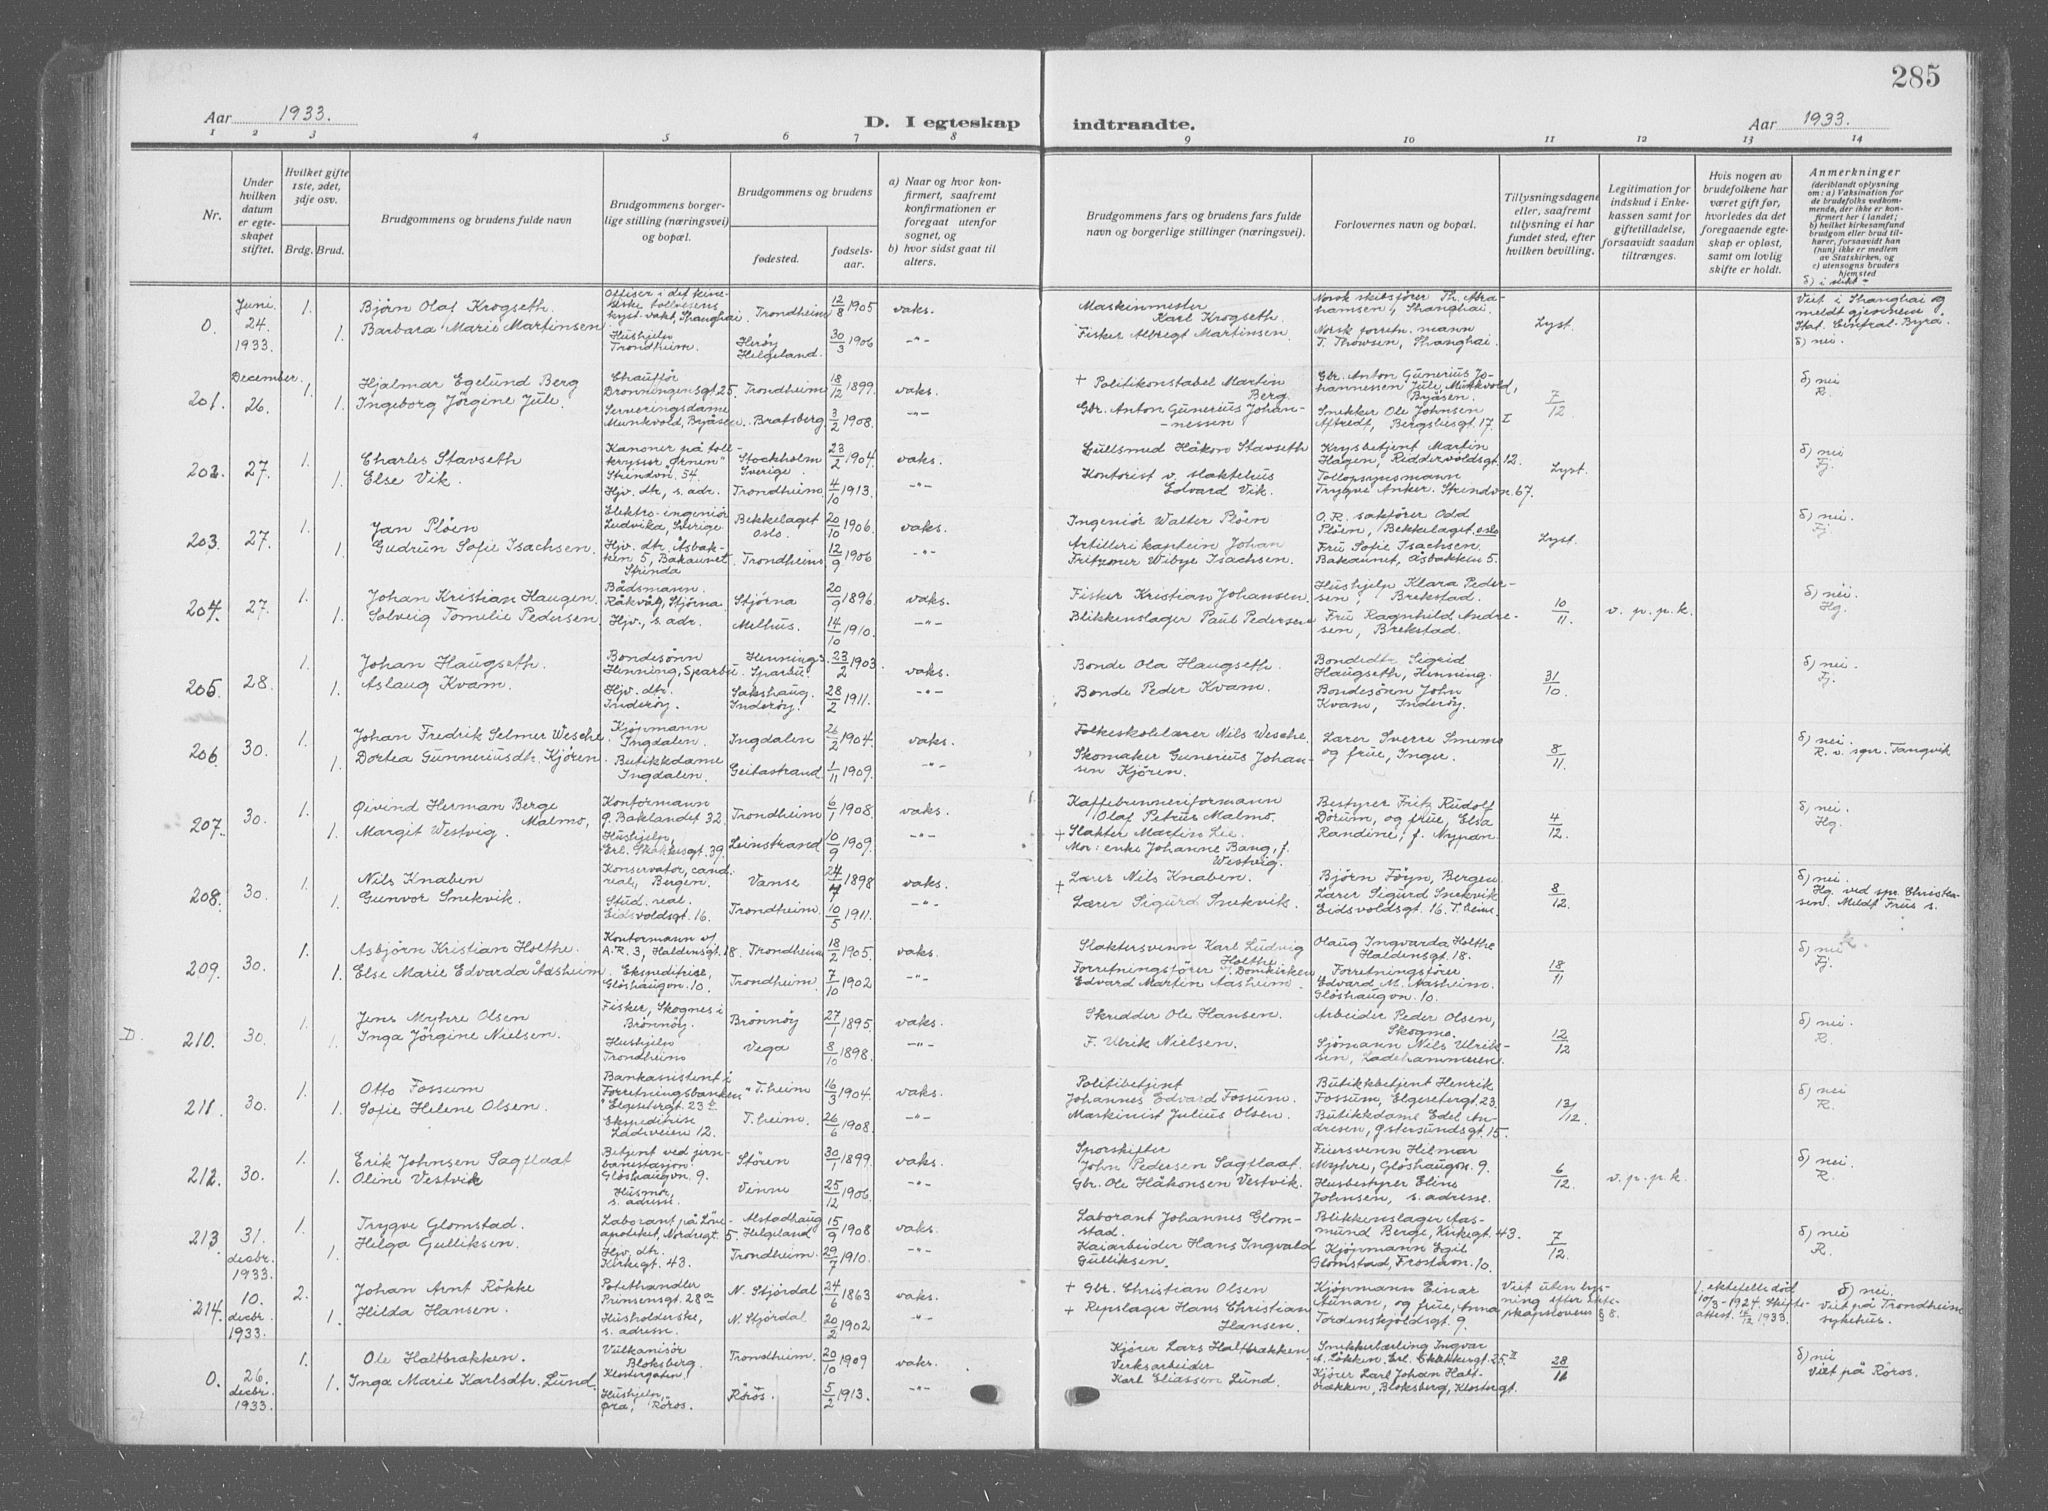 285
Aar 1933. D. I egteskap indtraadte. Aar 1933.
1 2 3 4 5 6 7 8 9 10 11 12 13 14
Nr.
Under hvilken datum er egteskapet stiftet.
Hvilket gifte 1ste, 2det, 3dje osv.
Brdg. Brud.
Brudgommens og brudens fulde navn
Brudgommens borgerlige stilling (næringsvei) og bopæl.
Brudgommens og brudens
fødested. fødselsaar.
a) Naar og hvor konfirmert, saafremt konfirmationen er foregaat utenfor sognet, og
b) hvor sidst gaat til alters.
Brudgommens fars og brudens fars fulde navn og borgerlige stillinger (næringsvei).
Forlovernes navn og bopæl.
Tillysningsdagene eller, saafremt tillysning ei har fundet sted, efter hvilken bevilling.
Legitimation for indskud i Enkekassen samt for giftetilladelse, forsaavidt saadan tiltrænges.
Hvis nogen av brudefolkene har været gift før, hvorledes da det foregaaende egteskap er opløst, samt om lovlig skifte er holdt.
Anmerkninger
(deriblandt oplysning om: a) Vaksination for de brudefolks vedkommende, der ikke er konfirmert her i landet; b) hvilket kirkesamfund brudgom eller brud tilhører, forsaavidt han (hun) ikke er medlem av Statskirken, og c) utensogns bruders hjemsted
δ) i slekt -
0. Juni 24. 1933. 1. Bjørn Olaf Krogseth Offiser i det kinesiske tollvesens kyst-vakt, Shanghai. Trondheim 12/8 1905 vaks. Maskinmester Karl Krogseth. Norsk skibsfører Th. Abrahamsen, Shanghai. Lyst. Viet i Shanghai og meldt gjennem Stat. Central-Byrå.
1. Barbara Marie Martinsen Hushjelp Trondheim. Herøy Helgeland. 30/3 1906 -"- Fisker Albregt Martinsen. Norsk forretn. mann T. Thowsen, Shanghai. δ) nei.
201. December. 26. 1. Hjalmar Egelund Berg Chauffør Dronningensgt 25. Trondheim 18/12 1899. vaks. + Politikonstabel Martin Berg. Gbr. Anton Gunerius Johannessen Jule, Munkvold, Byåsen. 7/12 δ) nei R.
1. Ingeborg Jørgine Jule. Serveringsdame Munkvold, Byåsen. Bratsberg 3/2 1908. -"- Gbr. Anton Gunerius Johannessen Snekker Ole Johnsen Aftredt, Bergsliensgt. 17. I
202. 27. 1. Charles Stavseth Kanoner på tollkrysser "Ørnen" Strindvn. 54. Stockholm Sverige. 23/2 1904. vaks. Gullsmed Håkon Stavseth Krysbetjent Martin Hagen, Riddervoldsgt. 12. Lyst. δ) nei Fj.
1. Else Vik. Hjv. dtr, s. adr. Trondheim 4/10 1913. -"- Kontorist v. slaktehus Edvard Vik. Tollopsynsmann Trygve Anker. Strindvn. 67.
203. 27. 1. Jan Pløen Elektro-ingeniør Ludvika, Sverige Bekkelaget Oslo. 20/10 1906. vaks. Ingeniør Walter Pløen O.R. sakfører Odd Pløen, Bekkelaget. Oslo Lyst. δ) nei. Fj.
1. Gudrun Sofie Isachsen. Hjv. dtr. Åsbakken 5, Bakaunet Strinda Trondheim 12/9 1906 -"- Artillerikaptein Johan Fritzner Wibye Isachsen. Fru Sofie Isachsen. Bakaunet, Åsbakken 5.
204. 27. 1. Johan Kristian Haugen. Bådsmann. Råkvåg, Stjørna Stjørna 20/9 1896. vaks. Fisker Kristian Johansen. Hushjelp Klara Pedersen, Brekstad. 10/11. v. p. p. k. δ) nei. Hg.
1. Solveig Tomelie Pedersen. Hjv., s. adr. Melhus. 14/10 1910. -"- Blikkenslager Paul Pedersen Fru Ragnhild Andresen, Brekstad.
205. 28. 1. Johan Haugseth. Bondesønn Henning, Sparbu Hennings. Sparbu. 23/2 1903. vaks. Bonde Ola Haugseth. Bondedtr. Sigrid Haugseth, Henning. 31/10. δ) nei Fj.
1. Aslaug Kvam. Hjv. dtr. Inderøy. Sakshaug. Inderøy. 28/2 1911. -"- Bonde Peder Kvam. Bondesønn John Kvam, Inderøy.
206. 30. 1. Johan Fredrik Selmer Wesche Kjøpmann Ingdalen. Ingdalen 26/2 1904. vaks. Folkeskolelærer Nils Wesche. Lærer Sverre Smemo og frue, Inger. 8/11. δ) nei. R. v. spr. Tangvik
1. Dortea Gunneriusdtr. Kjøren. Butikkdame Ingdalen. Geitastrand. 1/11 1909. -"- Skomaker Gunerius Johansen Kjøren.
207. 30. 1. Øivind Herman Berge Malmo, Kontormann Ø. Baklandet 32. Trondheim 6/1 1908. vaks. Kaffebrenneriformann Olaf Petrus Malmo. Bestyrer Fritz Rudolf Dørum, og frue, Elsa Randine, f. Mypan. 4/12. δ) nei. Hg.
1. Margit Westvig. Hushjelp, Erl. Skakkesgt. 39. Leinstrand 10/9 1909. -"- + Slakter Martin Lie. Mor: enke Johanne Bang, f. Westvig.
208. 30. 1. Nils Knaben Konservator, cand. real., Bergen. Vanse 24/7 1898 vaks. + Lærer Nils Knaben. Bjørn Føyn, Bergen 8/12. δ) nei. Hg. ved spr. Christensen. Meldt Frus s.
1. Gunvor Snekvik. Stud. real. Eidsvoldsgt. 16. Trondheim. 10/5 1911. -"- Lærer Sigurd Snekvik. Lærer Sigurd Snekvik Eidsvoldsgt. 16. T.heim.
209. 30. 1. Asbjørn Kristian Holthe. Kontormann v/ A.R. 3, Haldensgt. 18. Trondheim 18/2 1905. vaks. Slaktersvenn Karl Ludvig Holthe. Olaug Ingvarda Holthe Haldensgt. 18. 18/11 δ) nei Fj.
1. Else Marie Edvarda Aasheim. Ekspeditrise, Gløshaugvn. 10. Trondheim. 7/10 1902 -"- Forretningsfører i Domkirken Edvard Martin Aasheim. Forretningsfører Edvard M. Aasheim. Gløshaugvn. 10.
D. 210. 30. 1. Jens Myhre Olsen Fisker, Skognes i Brønnøy. Brønnøy 27/1 1895. vaks. Skredder Ole Hansen. Arbeider Peder Olsen, Skogmo. 12/12 δ) nei. R.
1. Inga Jørgine Nielsen. Hushjelp Trondheim Vega 8/10 1898. -"- F. Ulrik Nielsen. Sjømann Nils Ulriksen, Ladehammeren.
211. 30. 1. Otto Fossum Bankassistent i "Forretningsbanken" Elgesetergt. 23 b T.heim 16/3 1904. vaks. Politibetjent Johannes Edvard Fossum. Butikkbetjent Henrik Fossum, Elgesetergt. 23. 13/12. δ) nei R.
1. Sofie Helene Olsen. Ekspeditrise Ladeveien 12. T.heim. 26/6 1908. -"- Maskinist Julius Olsen. Butikkdame Edel Andresen, Østersundsgt. 15.
212. 30. 1. Erik Johnsen Sagflaat Betjent ved jernbanestasjon. Gløshaugvn. 9. Støren 30/1 1899. vaks. Sporskifter John Pedersen Sagflaat. Feiersvenn Hilmar Myhre, Gløshaugvn. 9. 6/12. v. p. p. k. δ) nei. R.
1. Oline Vestvik Husmor, s. adresse. Vinne 25/12 1906. -"- Gbr. Ole Håkonsen Vestvik. Husbestyrer Eline Johnsen, s. adresse.
213 31. decbr. 1933. 1. Trygve Glomstad. Laborant på Løveapoteket, Nordregt. 5. Alstadhaug Helgeland 15/9 1908 vaks. Laborant Johannes Glomstad. Blikkenslager Aasmund Berge, Kirkegt. 43. 7/12. δ) nei R.
1. Helga Gulliksen. Hjv. dtr. Kirkegt. 43. Trondheim. 29/7 1910. -"- Kaiarbeider Hans Ingvald Gulliksen. Kjøpmann Egil Glomstad, Frostavn. 10.
214. 10. decbr. 1933. 2. Johan Arnt Røkke Potethandler Prinsensgt. 28 a N. Stjørdal 24/6 1863 vaks. + Gbr. Christian Olsen Kjøpmann Einar Aunan, og frue, Anna Tordenskjoldsgt. 9. Viet uten lysning efter ekteskapslovens § 8. 1. ektefelle død 10/3-1924. Skifteattest. 14/12 1933. δ) nei. Viet på Trondheim sykehus.
1. Hilda Hansen. Husholderske, s. adresse. N. Stjørdal. 20/2 1902 -"- + Repslager Hans Christian Hansen.
0. 26. decbr. 1933. 1. Ole Haltbrækken. Vulkanisør Bloksberg. Klostergaten. Trondheim. 20/10 1909 vaks. Kjører Lars Haltbrækken Snekkerlærling Ingvar A. Løkken. Erl. Skakkesgt. 25. II 28/11 δ) nei Viet på Røros.
1. Inga Marie Karlsdtr. Lund. Hushjelp, Øra, Røros. Røros. 5/2 1913. -"- Verksarbeider Karl Eliassen Lund. Kjører Carl Johan Haltbrækken, Bloksberg, Klostergt.